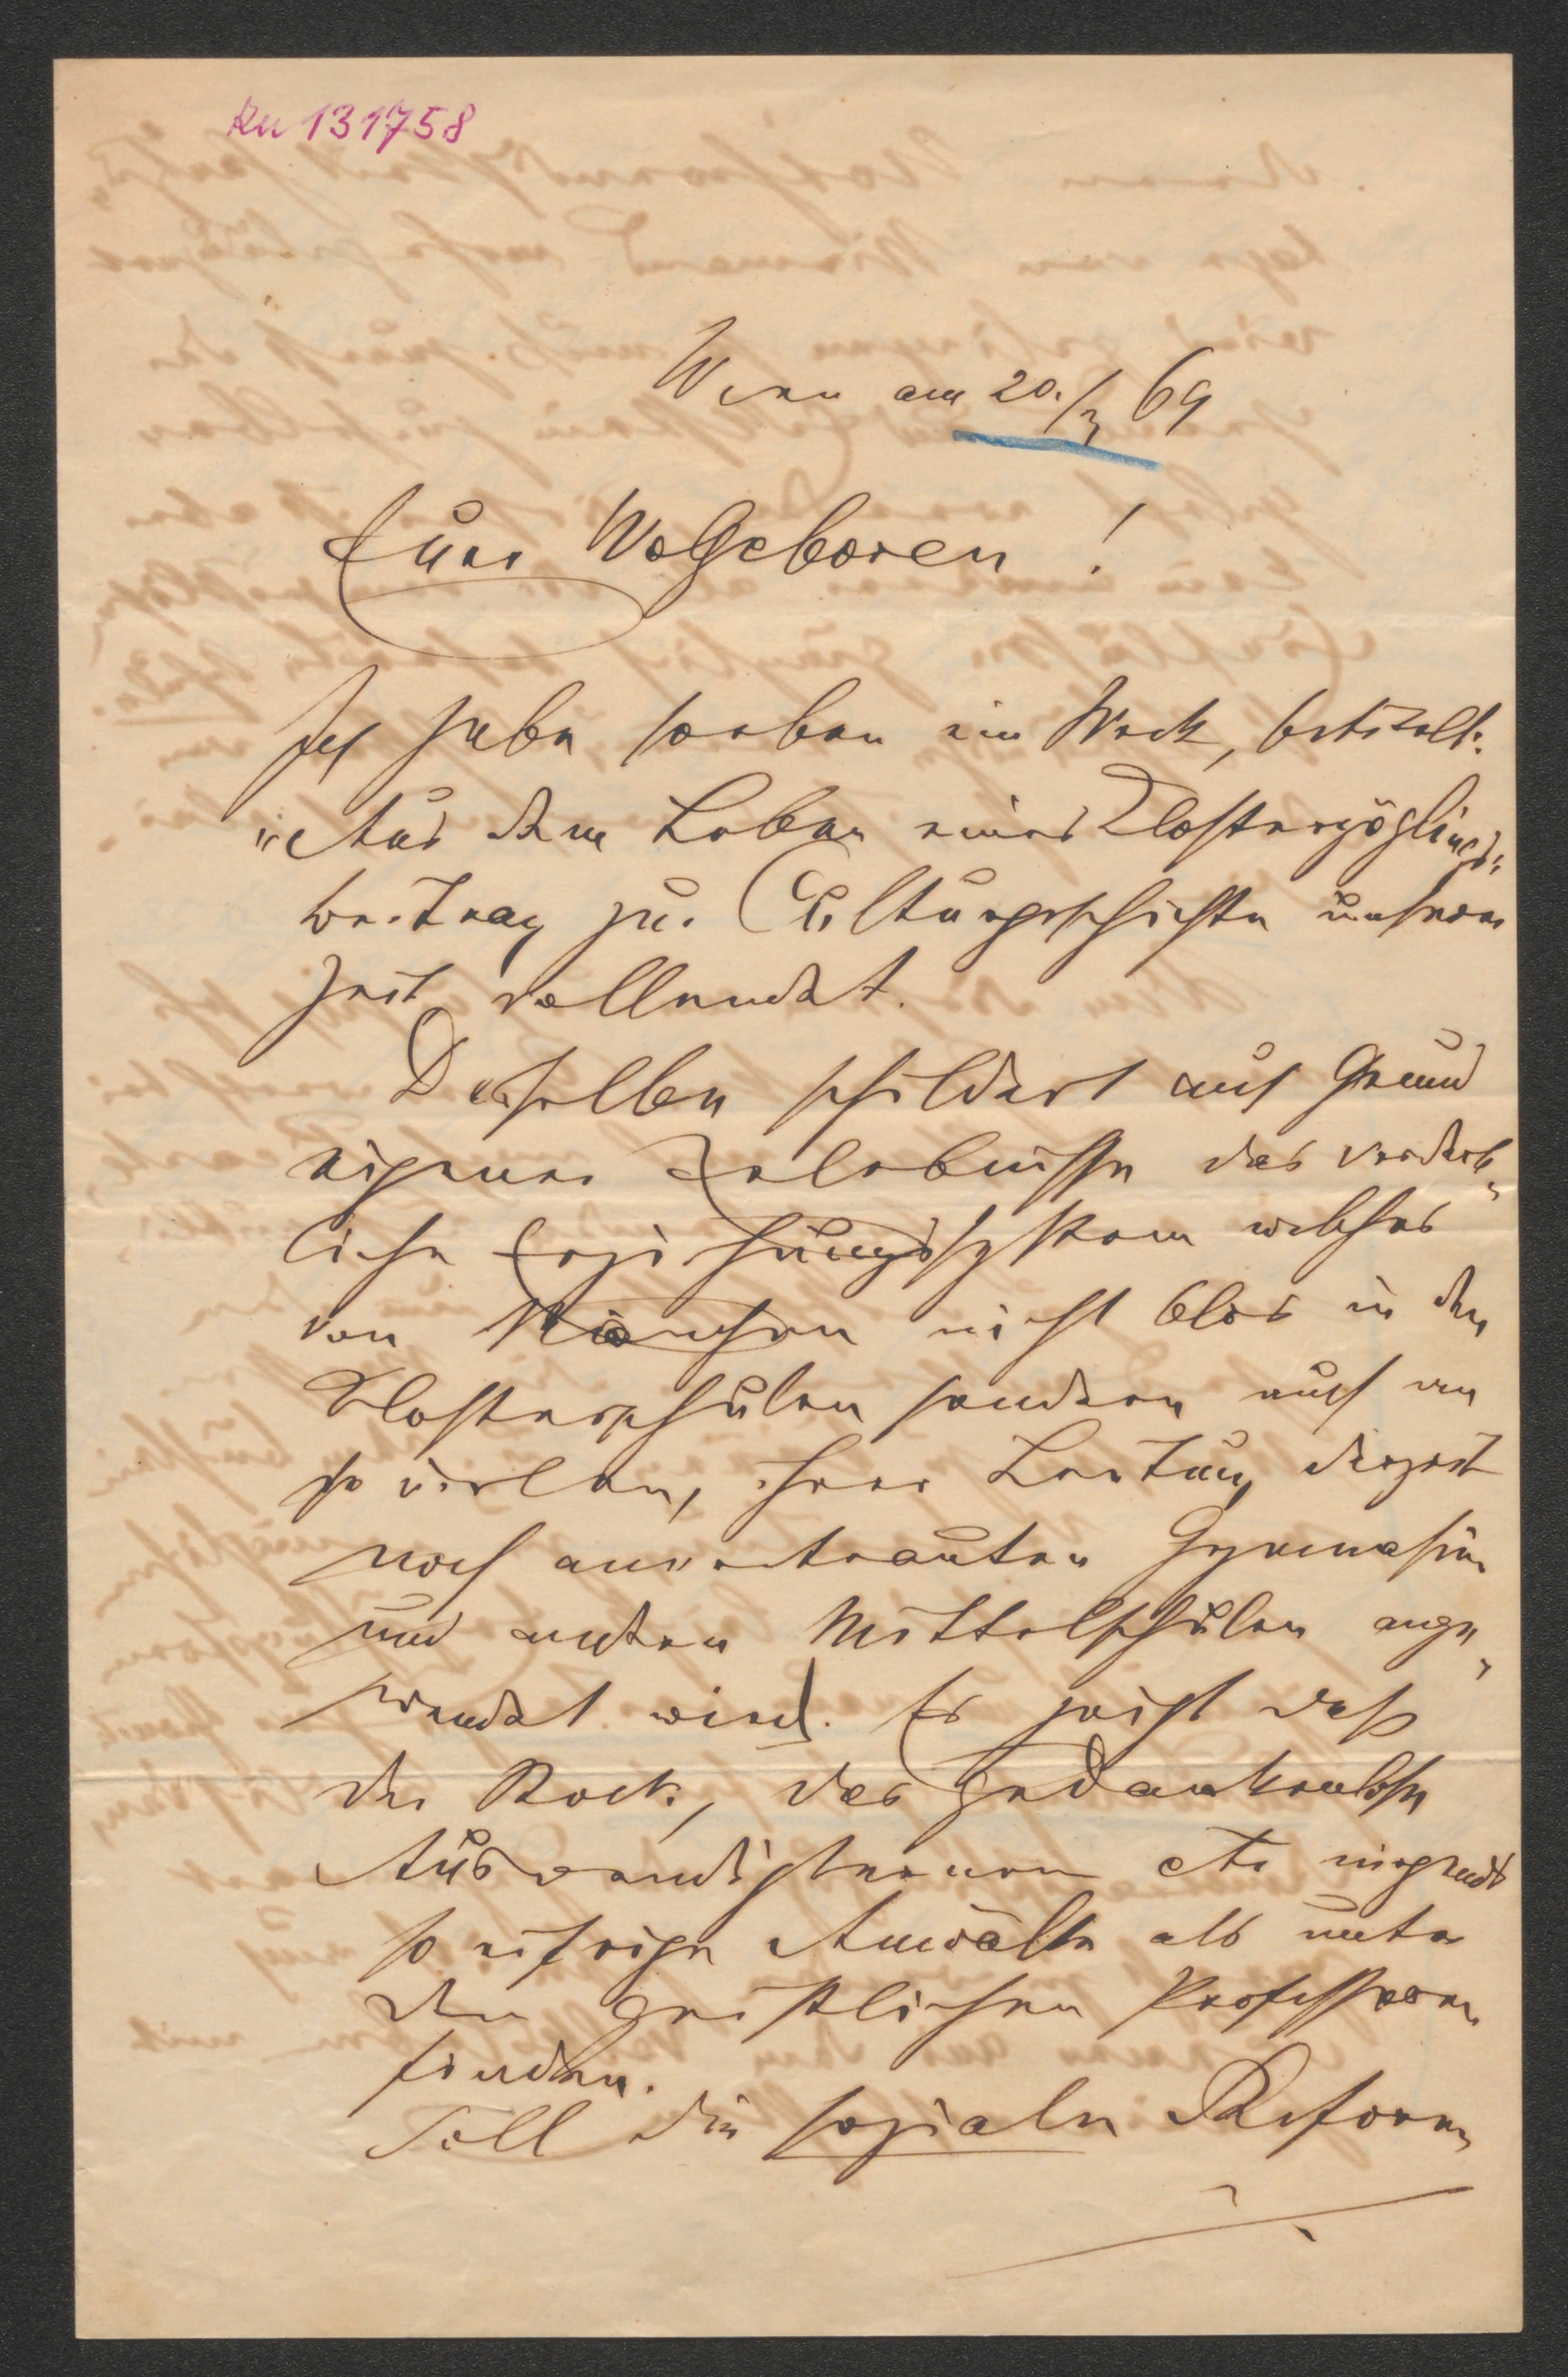 Ku 131758
Wien am 20./3 69
Euer Wolgeboren!
Ich habe soeben ein Werk, betitelt:
„Aus dem Leben eines Klosterzöglings"
Beitrag zur Culturgeschichte unserer
Zeit vollendet.
Dasselbe schildert auf Grund
eigener Erlebnisse das verderb„
liche Erziehungssystem welches
von Mönchen nicht blos in den
Klosterschulen sondern auch an
so vielen, ihrer Leitung derzeit
noch anvertrauten Gymnasien
und andern Mittelschulen ange„
wendet wird. Es zeigt daß
der Stock, das gedankenlose
Auswendiglernen etc nirgends
so eifrige Anwälte als unter
den geistlichen Professoren
finden.
Soll die soziale Reform